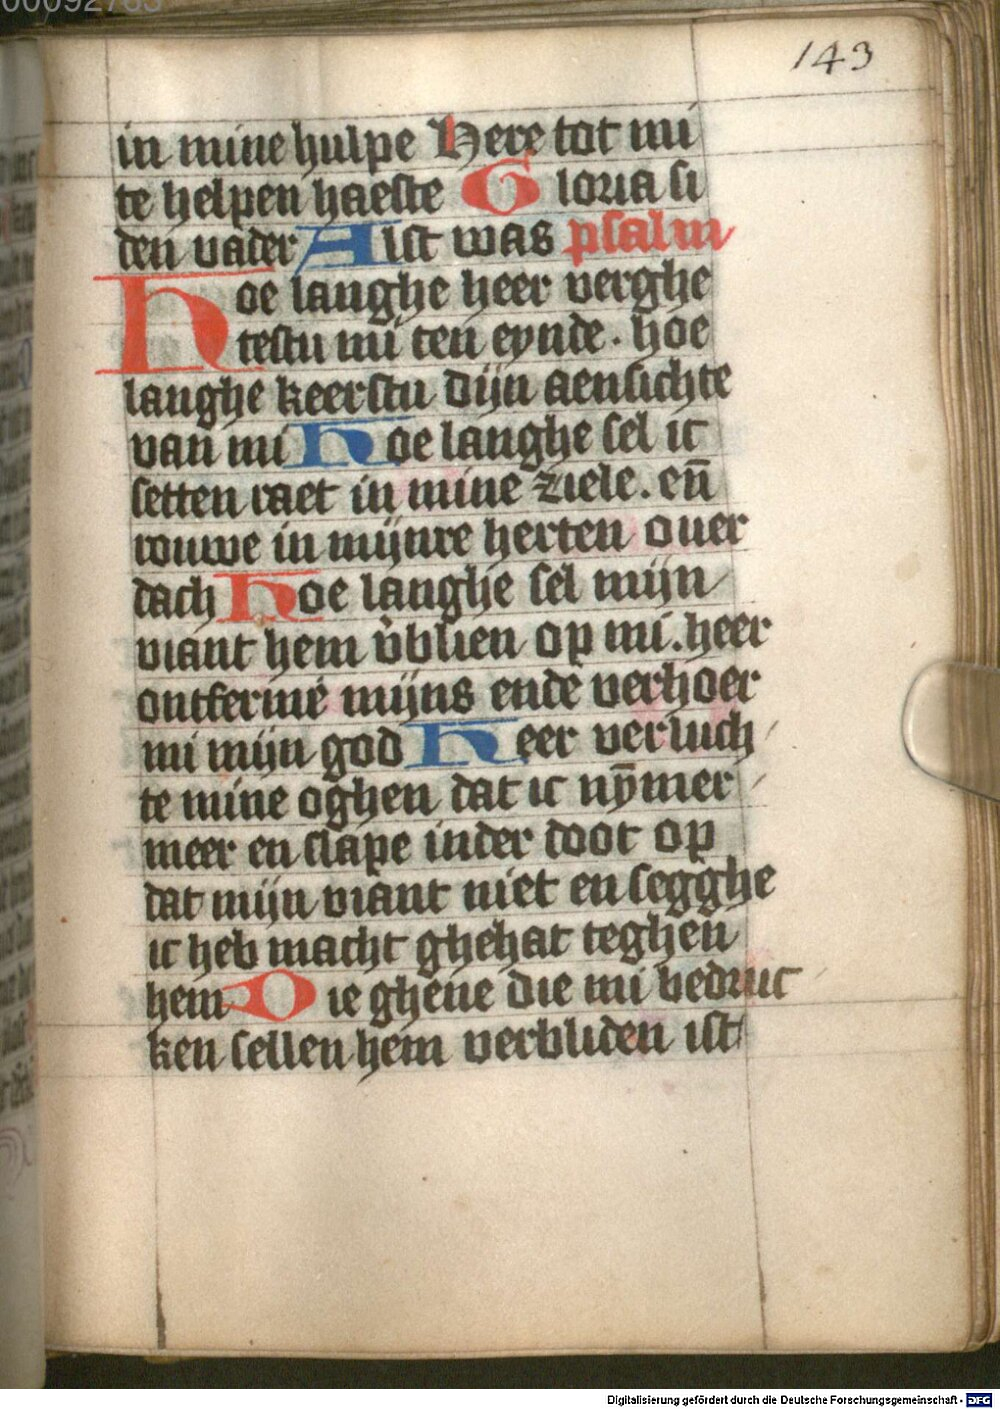 00092783
143
in mine hulpe Here tot mi
te helpen haeste Gloria si
den vader Alst was psalm
Hoe langhe heer verghe
testu mi ten eynde. hoe
langhe keerstu dijn aensichte
van mi Hoe langhe sel ic
setten raet in mine ziele. en̄
rouwe in mijnre herten ouer
dach Hoe langhe sel mijn
viant hem v̓blien op mi. heer
ontferme mijns ende verhoer
mi mijn god Heer verluch
te mine oghen dat ic nȳmer
meer en slape inder doot op
dat mijn viant niet en segghe
ic heb macht ghehat teghen
hem Die ghene die mi bedruc
ken sellen hem verbliden ist
Digitalisierung gefördert durch die Deutsche Forschungsgemeinschaft - DFG